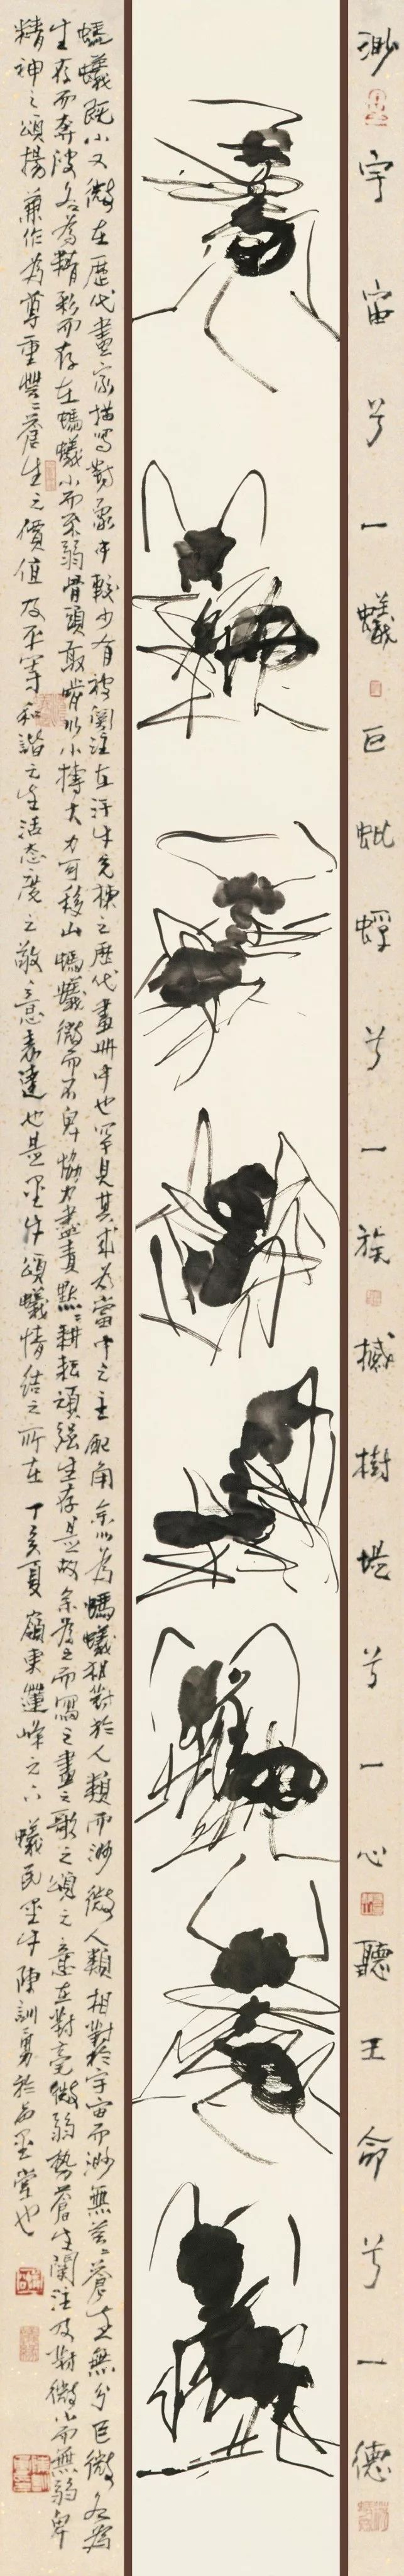 渺宇宙兮一蟻巨蚍蜉兮一族撼樹堤兮一心聽王命兮一德
螞蟻既小又微在歷代畫家描寫對象中較少有被關注在汗牛充棟之歷代畫冊中也罕見其或為當中之主配角余以為螞蟻相對於人類而渺微人類相對於宇宙而渺無蒼生無分巨微各為
生存而奔波各為精彩而存在螞蟻小而不弱骨頭敢啃以小搏大力可移山螞蟻微而不卑協力盡責默默耕耘頑強生存是故余為之而寫之畫之歌之頌之意在對毫微弱勢蒼生關注及對微小而無弱卑
精神之頌揚兼作為尊重芸芸蒼生之價值及平等和諧之生活态度之敬意表達也是墨牛頌蟻情結之所在丁亥夏嶺東蓮峰之下蟻民墨牛陳訓勇於石墨堂也